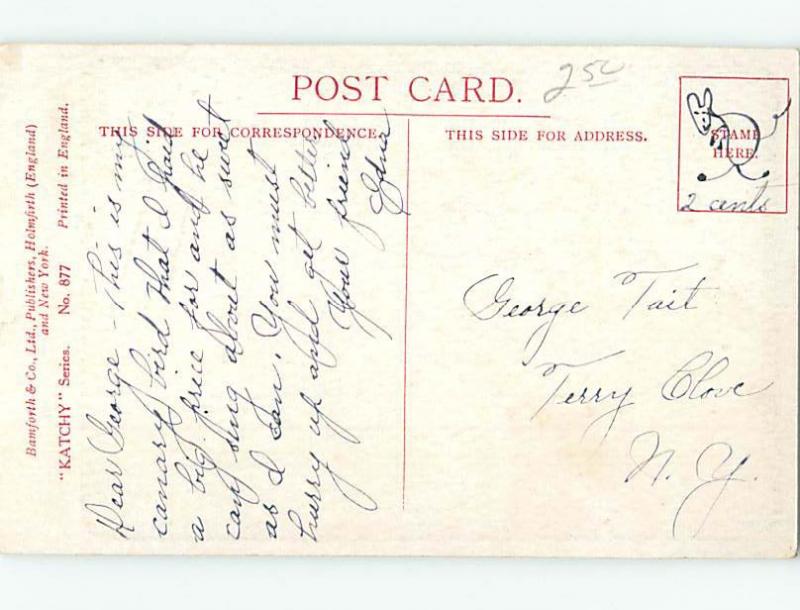 POST CARD.
250
THIS SIDE FOR CORRESPONDENCE.
THIS SIDE FOR ADDRESS.
STAMP
HERE.
2 cents
Bamforth & Co., Ltd., Publishers, Holmfirth (England)
and New York.
"KATCHY" Series. No. 877 Printed in England.
Dear George - This is my
canary bird that I paid
a big price for and he
can sing about as sweet
as I can. You must
hurry up and get better
Your friend
Edna
George Tait
Terry Clove
N. Y.